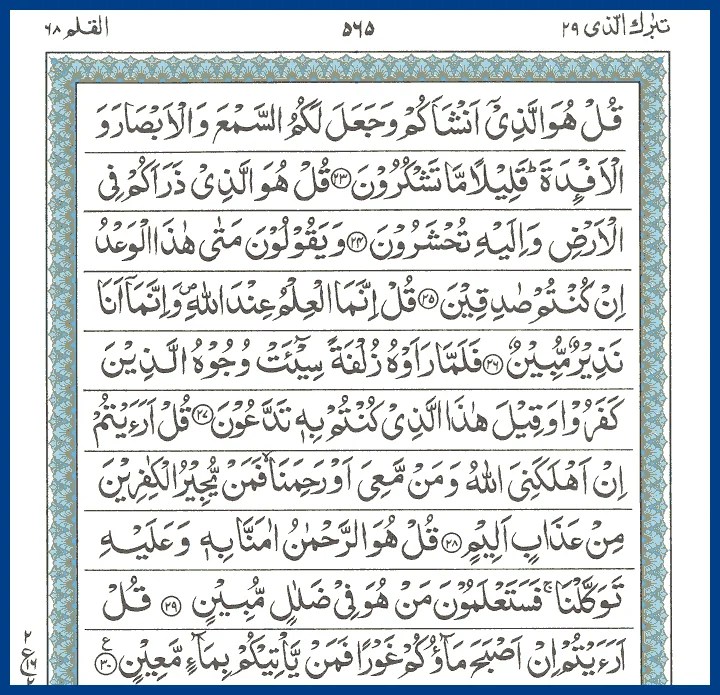 تبٰرك الّذی ٢٩ ٥٦٥ القلم ٦٨
قُلْ هُوَ الَّذِیْۤ اَنْشَاَكُمْ وَجَعَلَ لَكُمُ السَّمْعَ وَالْاَبْصَارَ وَ
الْاَفْـِٕدَةَ ؕ قَلِیْلًا مَّا تَشْكُرُوْنَ ﴿٢٣﴾ قُلْ هُوَ الَّذِیْ ذَرَاَكُمْ فِی
الْاَرْضِ وَاِلَیْهِ تُحْشَرُوْنَ ﴿٢٤﴾ وَیَقُوْلُوْنَ مَتٰی هٰذَا الْوَعْدُ
اِنْ كُنْتُمْ صٰدِقِیْنَ ﴿٢٥﴾ قُلْ اِنَّمَا الْعِلْمُ عِنْدَ اللّٰهِ ۪ وَاِنَّمَاۤ اَنَا
نَذِیْرٌ مُّبِیْنٌ ﴿٢٦﴾ فَلَمَّا رَاَوْهُ زُلْفَةً سِیْٓـَٔتْ وُجُوْهُ الَّذِیْنَ
كَفَرُوْا وَقِیْلَ هٰذَا الَّذِیْ كُنْتُمْ بِهٖ تَدَّعُوْنَ ﴿٢٧﴾ قُلْ اَرَءَیْتُمْ
اِنْ اَهْلَكَنِیَ اللّٰهُ وَمَنْ مَّعِیَ اَوْ رَحِمَنَا ۙ فَمَنْ یُّجِیْرُ الْكٰفِرِیْنَ
مِنْ عَذَابٍ اَلِیْمٍ ﴿٢٨﴾ قُلْ هُوَ الرَّحْمٰنُ اٰمَنَّا بِهٖ وَعَلَیْهِ
تَوَكَّلْنَا ۚ فَسَتَعْلَمُوْنَ مَنْ هُوَ فِیْ ضَلٰلٍ مُّبِیْنٍ ﴿٢٩﴾ قُلْ
اَرَءَیْتُمْ اِنْ اَصْبَحَ مَآؤُكُمْ غَوْرًا فَمَنْ یَّاْتِیْكُمْ بِمَآءٍ مَّعِیْنٍ ﴿٣٠﴾ ع
٢
ع
١٦
٢